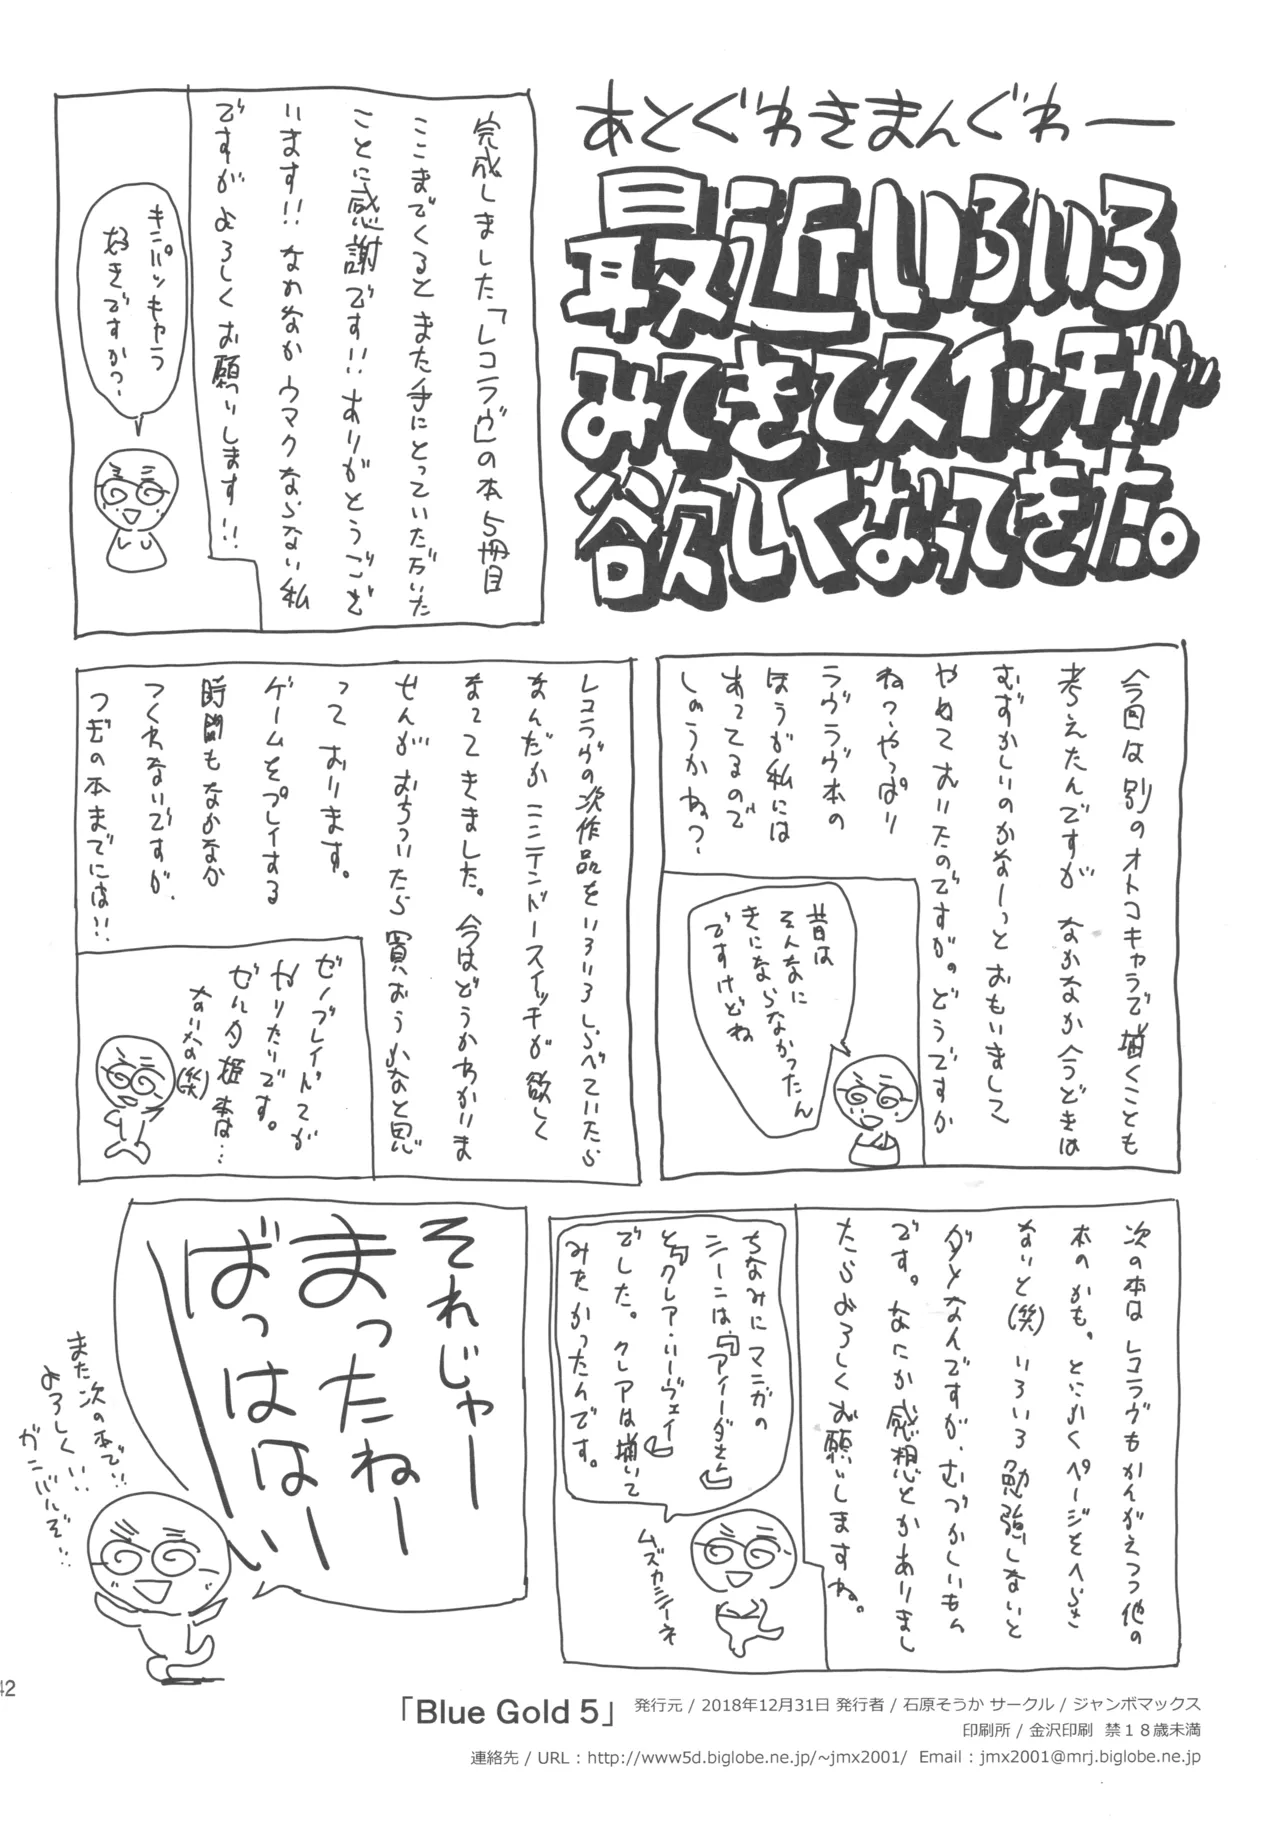 あとぐわきまんぐわー
最近いろいろ
みてきてスイッチが
欲しくなってきた。
完成しました「レコラヴ」の本5冊目
ここまでくるとまた手にとっていただいた
ことに感謝です!!ありがとうござ
います!!なかなかウマクならない私
ですがよろしくお願いします!!
キンパツキャラ
好きですか?
今回は別のオトコキャラで描くことも
考えたんですがなかなか今どきは
むずかしいのかなーっとおもいまして
やめておいたのですが。どうですか
ねっ、やっぱり
ラヴラヴ本の
ほうが私には
あってるので
しょうかね?
昔は
そんなに
きにならなかったん
ですけどね
レコラヴの次作品をいろいろしらべていたら
なんだかニンテンドースイッチが欲しく
なってきました。今はどうかわかりま
せんがおちついたら買おうかなと思
っております。
ゲームをプレイする
時間もなかなか
つくれないですが、
つぎの本までには!!
ゼノブレイドてが
やりたいです。
ゼルダ姫本は…
ないへの(笑)
次の本はレコラヴもかんがえつつ他の
本のかも。とにかくページをへらさ
ないと(笑)いろいろ勉強しないと
ダメなんですが、むづかしいもん
です。なにか感想とかありまし
たらよろしくお願いしますね。
ちなみにマンガの
シーンは「アイーダさん」
と「クレア・ハーヴェイ」
でした。クレアは描いて
みたかったんです。
ムズカシイネ
それじゃー
まったねー
ばっははーい
また次の本で!!
よろしく!!
ガンバルぞ!!
42
「Blue Gold 5」
発行元 / 2018年12月31日 発行者 / 石原そうか サークル / ジャンボマックス
印刷所 / 金沢印刷 禁18歳未満
連絡先 / URL : http://www5d.biglobe.ne.jp/~jmx2001/ Email : jmx2001@mrj.biglobe.ne.jp